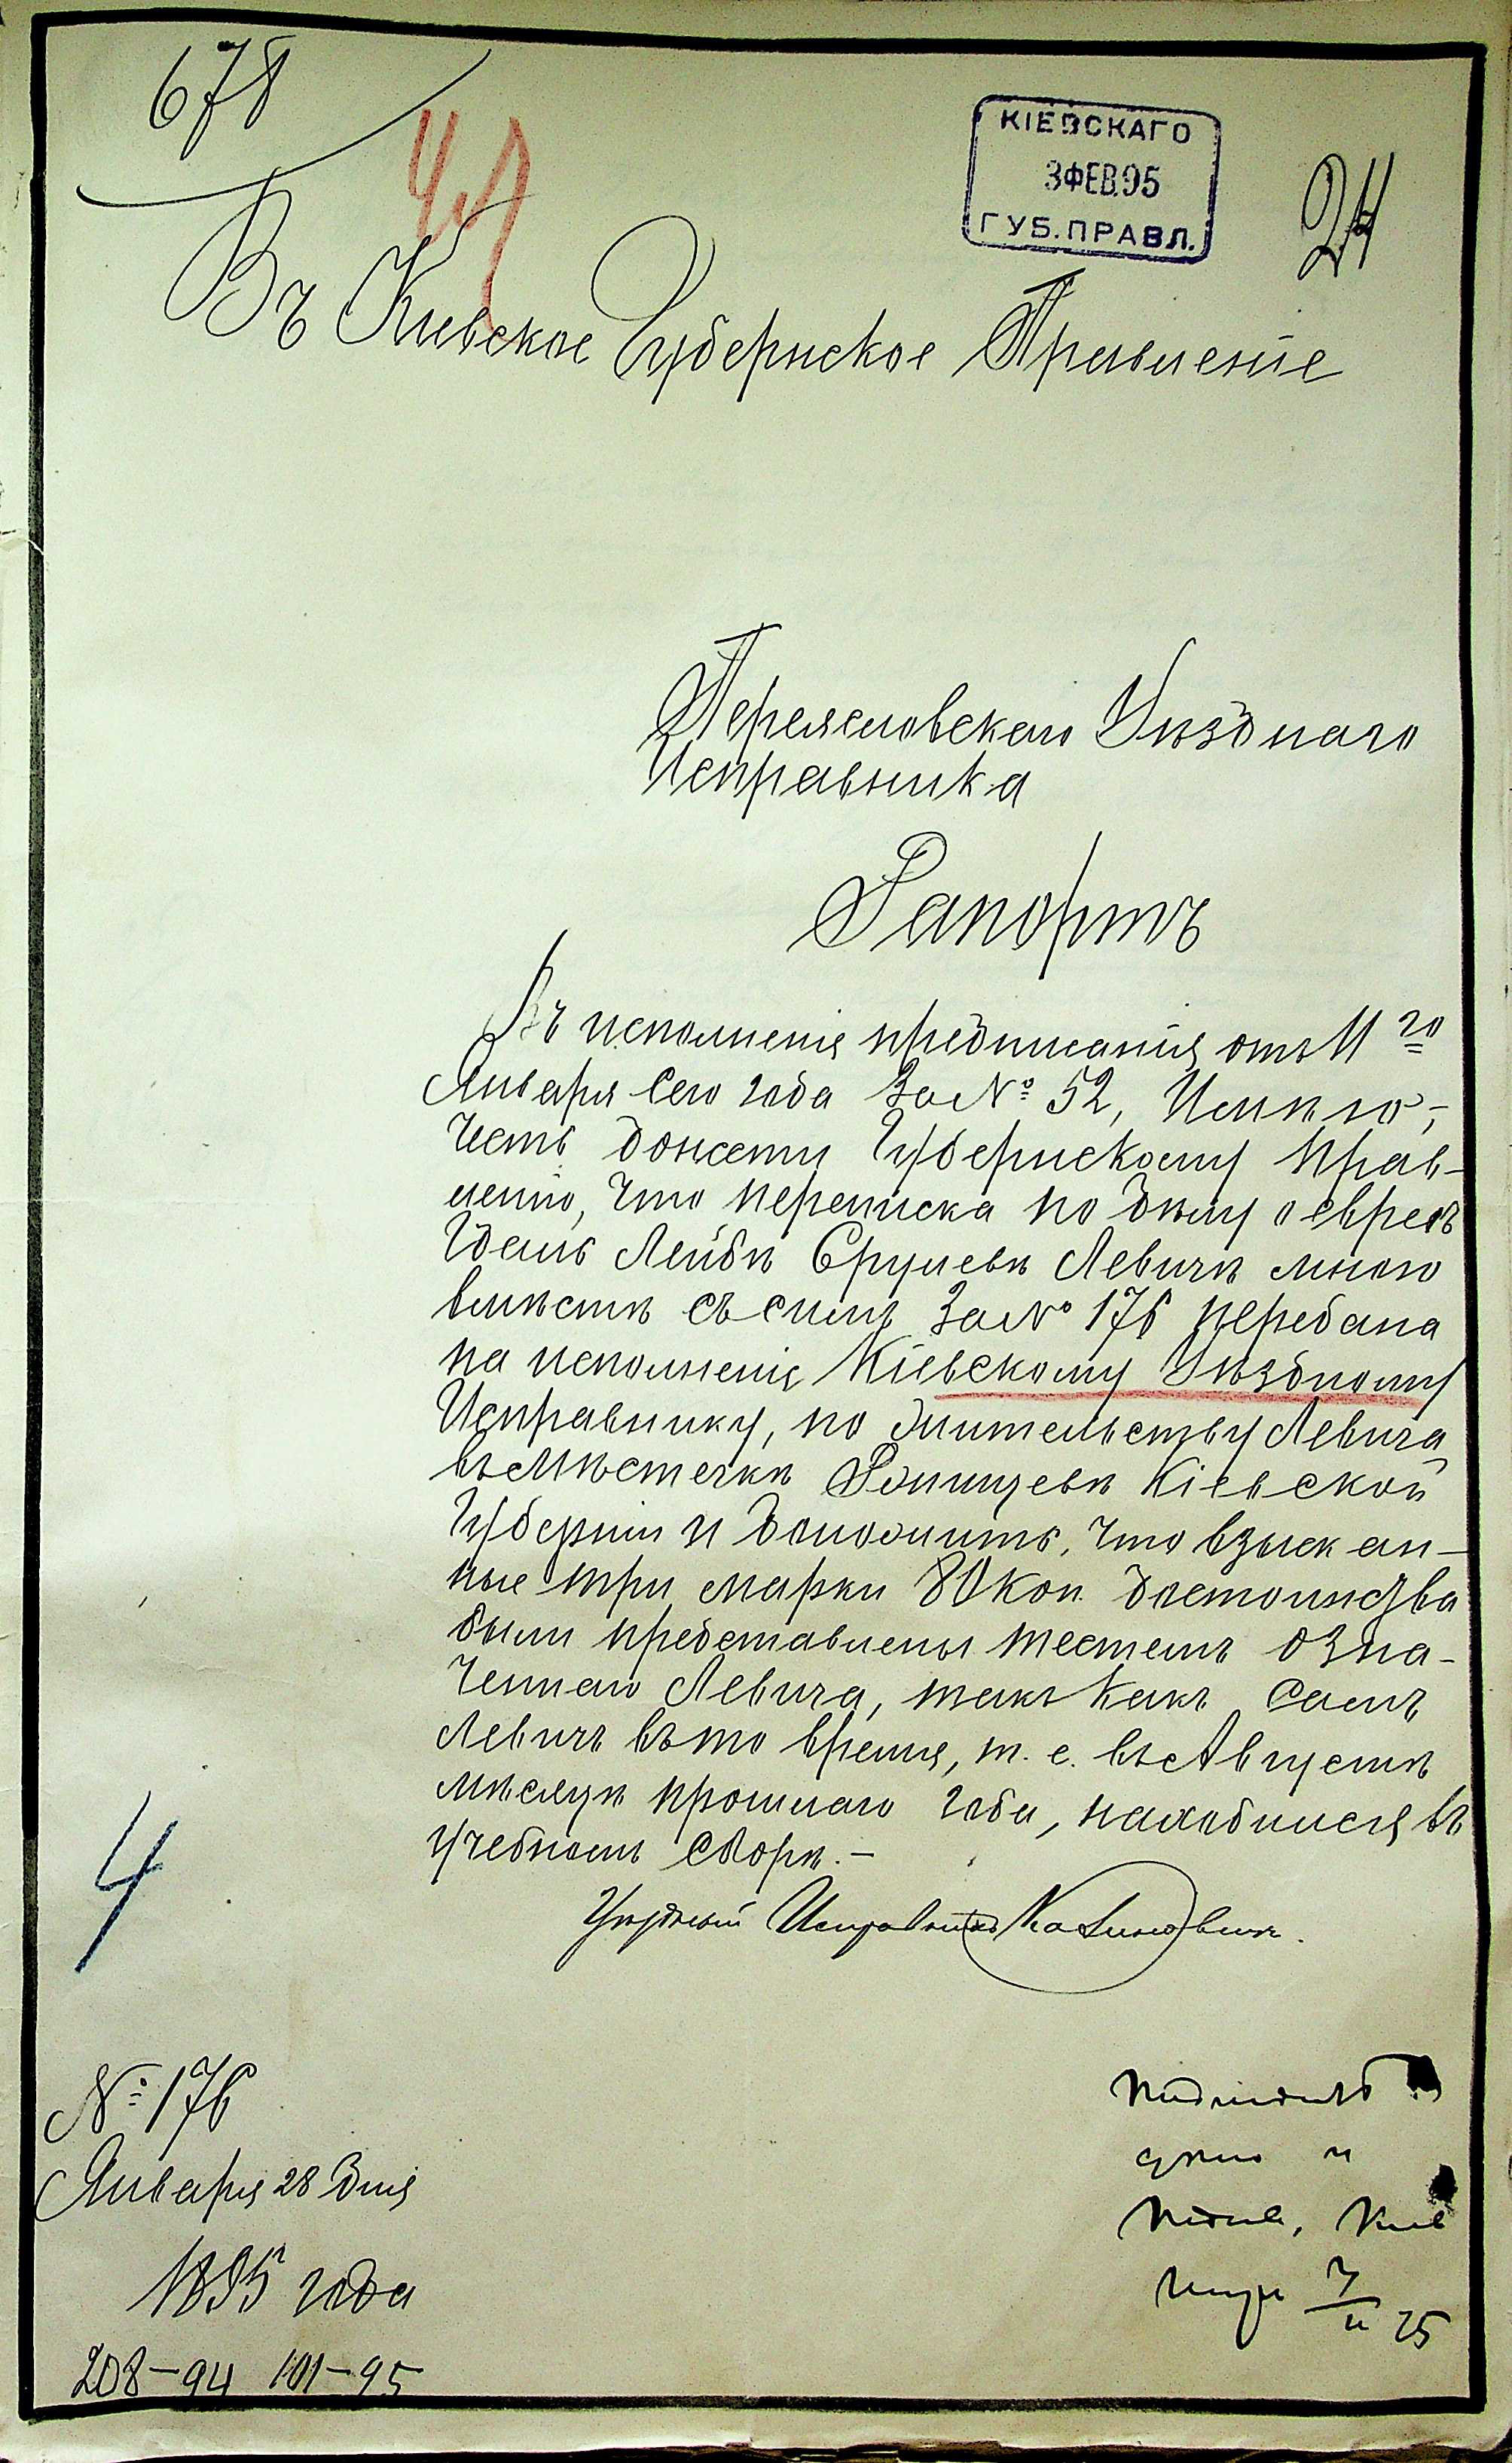 678
КІЕВСКАГО
3 ФЕВ.95
ГУБ. ПРАВЛ.
24
Въ Кіевское Губернское Правленіе
Переяславскаго Уѣзднаго
Исправника
Рапортъ
Въ исполненіе предписанія отъ 11 го
Января сего года за № 52, Имѣю
честь донести Губернскому Прав-
ленію, что переписка по дѣлу о евреѣ
Лейбѣ Срулевѣ Левичѣ мною
вмѣстѣ съ симъ за № 176 передана
на исполненіе Кіевскому Уѣздному
Исправнику, по жительству Левича
въ Мѣстечкѣ Кіевской
Губерніи и доложить, что взыскан-
ные три марки 80 коп. достоинства
были представлены тестемъ озна-
ченнаго Левича, такъ какъ самъ
Левичъ въ то время, т. е. въ Августѣ
мѣсяцѣ прошлаго года, находился въ
учебномъ сборѣ.-
Уѣздный Исправникъ
4
№ 176
Января 28 дня
1895 года
208-94 101-95